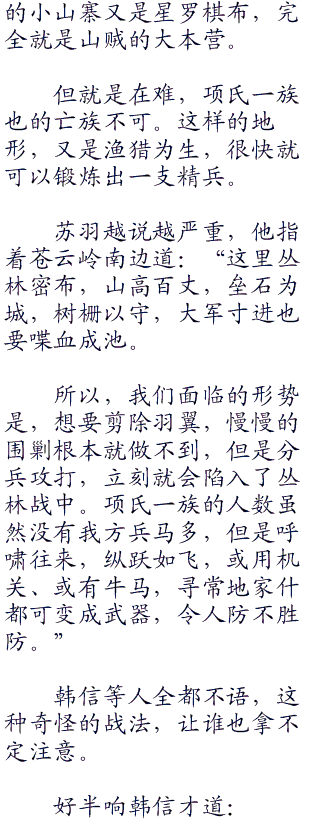 的小山寨又是星罗棋布，完
全就是山贼的大本营。
但就是在难，项氏一族
也的亡族不可。这样的地
形，又是渔猎为生，很快就
可以锻炼出一支精兵。
苏羽越说越严重，他指
着苍云岭南边道：“这里丛
林密布，山高百丈，垒石为
城，树栅以守，大军寸进也
要喋血成池。
所以，我们面临的形势
是，想要剪除羽翼，慢慢的
围剿根本就做不到，但是分
兵攻打，立刻就会陷入了丛
林战中。项氏一族的人数虽
然没有我方兵马多，但是呼
啸往来，纵跃如飞，或用机
关、或有牛马，寻常地家什
都可变成武器，令人防不胜
防。”
韩信等人全都不语，这
种奇怪的战法，让谁也拿不
定注意。
好半响韩信才道：